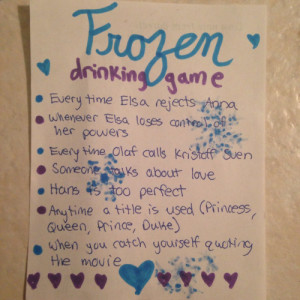 Frozen
drinking game
Everytime Elsa rejects Anna
Whenever Elsa loses control of
her powers
Everytime Olaf calls Kristoff Sven
Someone talks about love
Hans is too perfect
Anytime a title is used (Princess,
Queen, Prince, Duke)
when you catch yourself quoting
the movie